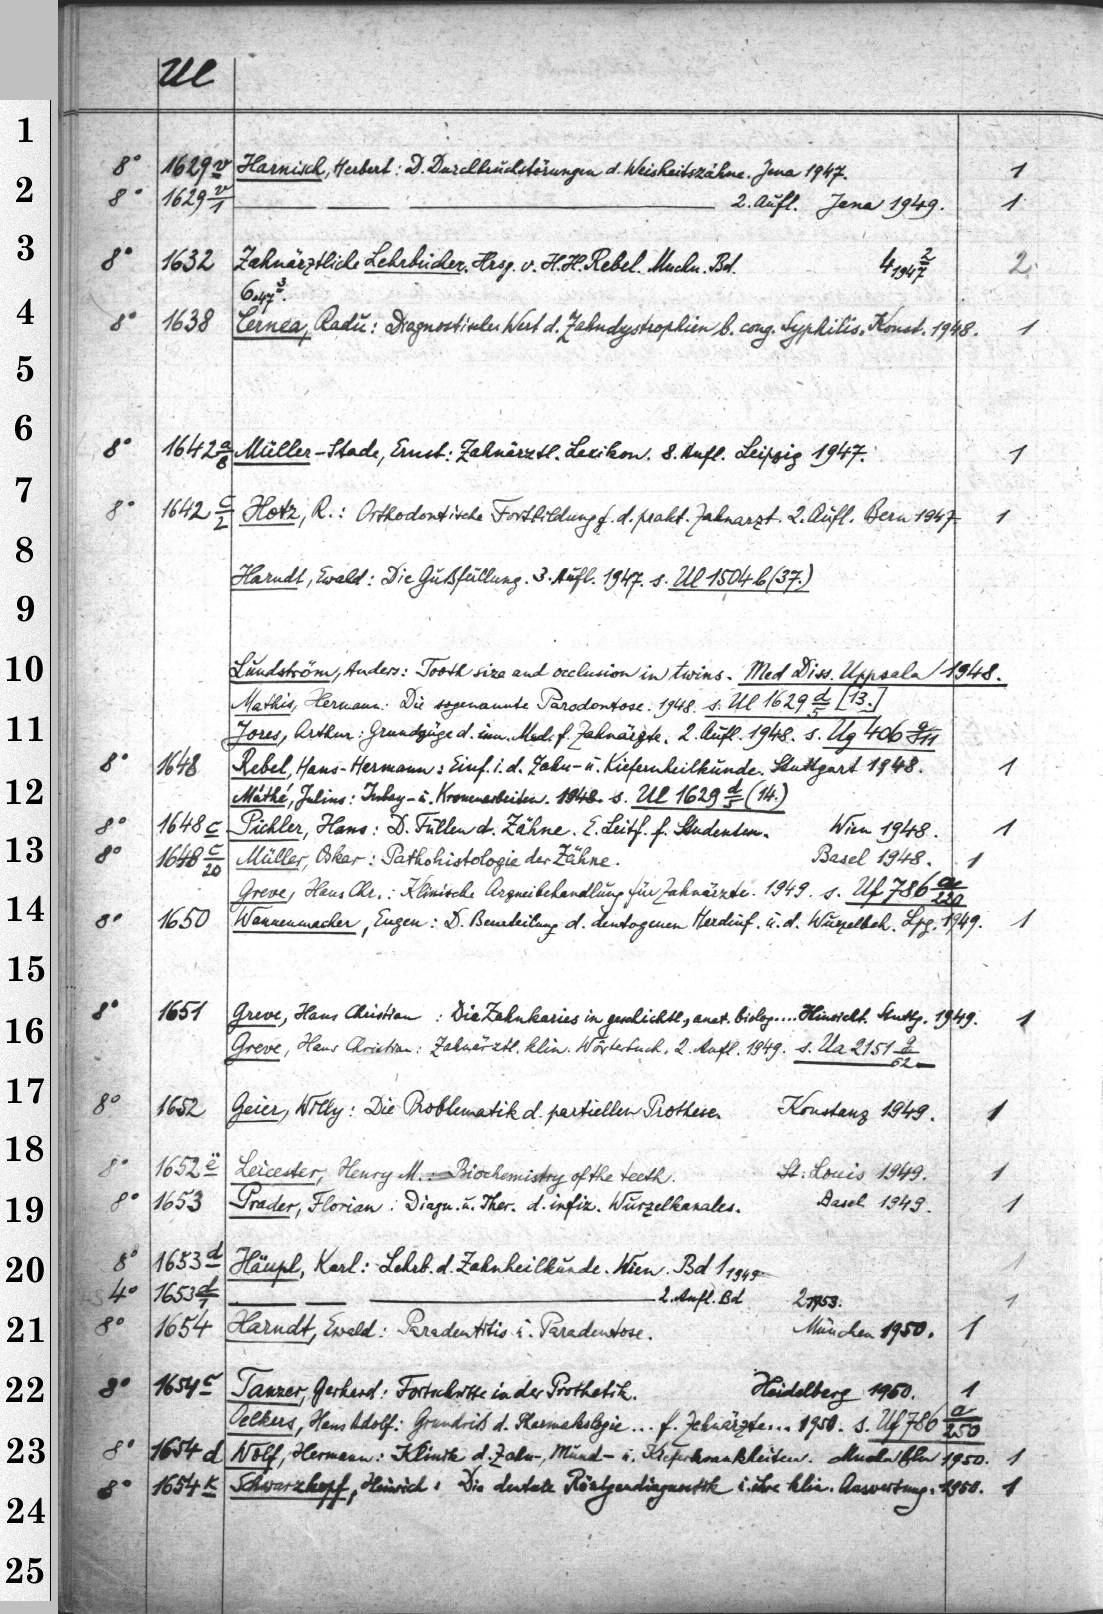 Ul
1
8° 1629 v Harnisch, Herbert: D. Durchbruchstörungen d. Weisheitszähne. Jena 1947. 1
2
8° 1629 v/1 2. Aufl. Jena 1949. 1
3
8° 1632 Zahnärztliche Lehrbücher. Hrsg. v. H.H. Rebel. Mchn. Bd. 4 1947 2 2
6. 47 3.
4
8° 1638 Cernea, Radu: Diagnostischer Wert d. Zahndystrophien b. cong. Syphilis. Konst. 1948. 1
5
6
8° 1642 a/8 Müller-Stade, Ernst: Zahnärztl. Lexikon. 8. Aufl. Leipzig 1947. 1
7
8° 1642 c/2 Hotz, R.: Orthodontische Fortbildung f. d. prakt. Zahnarzt. 2. Aufl. Bern 1947 1
8
Harndt, Ewald: Die Gußfüllung. 3. Aufl. 1947. s. Ul 1504 b (37.)
9
10
Lundström, Anders: Tooth size and occlusion in twins. Med Diss. Uppsala 1948.
Mathis, Hermann: Die sogenannte Parodontose. 1948. s. Ul 1629 d/5 [13.]
11
Jores, Arthur: Grundzüge d. inn. Med. f. Zahnärzte. 2. Aufl. 1948. s. Ug 406 g/11
8° 1648 Rebel, Hans-Hermann: Einf. i. d. Zahn- u. Kieferheilkunde. Stuttgart 1948. 1
12
Máthé, Julius: Inlay- u. Kronenarbeiten. 1948. s. Ul 1629 d/5 (14.)
8° 1648 c Pichler, Hans: D. Füllen d. Zähne. E. Leitf. f. Studenten. Wien 1948. 1
13
8° 1648 c/20 Müller, Oskar: Pathohistologie der Zähne. Basel 1948. 1
Greve, Hans Chr.: Klinische Arzneibehandlung für Zahnärzte. 1949. s. Uf 786
14
8° 1650 Wannenmacher, Eugen: D. Beurteilung d. dentogenen Herdinf. u. d. Wurzelbeh. Lpg. 1949. 1
15
8° 1651 Greve, Hans Christian : Die Zahnkaries in geschichtl., anat. biolog.... Hinsicht. Stuttg. 1949. 1
16
Greve, Hans Christian: Zahnärztl. klin. Wörterbuch. 2. Aufl. 1949. s. Ua 2151 g/62
17
8° 1652 Geier, Willy: Die Problematik d. partiellen Prothese. Konstanz 1949. 1
18
8° 1652 ë Leicester, Henry M.: Biochemistry of the teeth. St. Louis 1949. 1
19
8° 1653 Prader, Florian: Diagn. u. Ther. d. infiz. Wurzelkanales. Basel 1949. 1
20
8° 1653 d Häupl, Karl: Lehrb. d. Zahnheilkunde. Wien. Bd 1 1949 1
4° 1653 d/1 2. Aufl. Bd 2 1953. 1
21
8° 1654 Harndt, Ewald: Paradentitis u. Paradentose. München 1950. 1
22
8° 1654 c Tanzer, Gerhard: Fortschritte in der Prothetik. Heidelberg 1950. 1
Oelkers, Hans Adolf: Grundriß d. Pharmakologie... f. Zahnärzte... 1950. s. Uf 780 a/250
23
8° 1654 d Wolf, Hermann: Klinik d. Zahn-, Mund- u. Kieferkrankheiten. Mchn 1950. 1
8° 1654 k Schwarzkopf, Heinrich: Die dentale Röntgendiagnostik i. ihre klin. Auswertung. 1950. 1
24
25